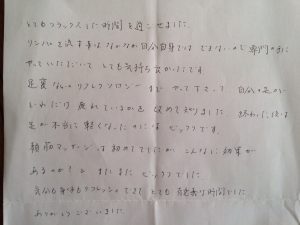 とてもリラックスした時間を過ごせました。
リンパを流す事はなかなか自分自身では できないので専門の方に
やっていただいて とても気持ち良かったです。
足裏 リフレクソロジーまで やって下さって、自分の足が
いかに 疲れているか 改めて知りました。終わった後は
足が本当に軽くなったのには ビックリです。
顔筋マッサージは初めてでしたが こんなに効果が
あるのか！と またまた ビックリでした。
気分も身体もリフレッシュできた とても 有意義な時間でした。
ありがとうございました。